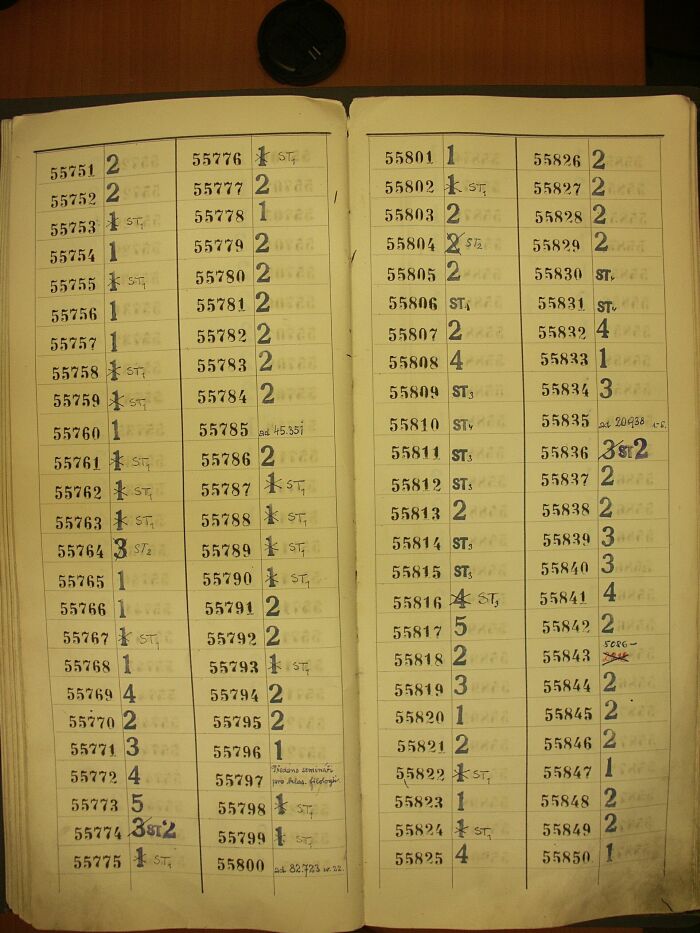 55751 2
55752 2
55753 1 ST1
55754 1
55755 1 ST1
55756 1
55757 1
55758 1 ST1
55759 1 ST1
55760 1
55761 1 ST1
55762 1 ST1
55763 1 ST1
55764 3 ST2
55765 1
55766 1
55767 1 ST1
55768 1
55769 4
55770 2
55771 3
55772 4
55773 5
55774 3 ST2
55775 1 ST1
55776 1 ST1
55777 2
55778 1
55779 2
55780 2
55781 2
55782 2
55783 2
55784 2
55785 ad 45.351
55786 2
55787 1 ST1
55788 1 ST1
55789 1 ST1
55790 1 ST1
55791 2
55792 2
55793 1 ST1
55794 2
55795 2
55796 1
55797 semináři
pro klas. filologii
55798 1 ST1
55799 1 ST1
55800 ad 82.723
55801 1
55802 1 ST1
55803 2
55804 2 ST2
55805 2
55806 ST4
55807 2
55808 4
55809 ST3
55810 ST4
55811 ST3
55812 ST3
55813 2
55814 ST3
55815 ST3
55816 4 ST3
55817 5
55818 2
55819 3
55820 1
55821 2
55822 1 ST1
55823 1
55824 1 ST1
55825 4
55826 2
55827 2
55828 2
55829 2
55830 ST4
55831 ST4
55832 4
55833 1
55834 3
55835 ad 20938
55836 3 ST2
55837 2
55838 2
55839 3
55840 3
55841 4
55842 2
55843 5086-
55844 2
55845 2
55846 2
55847 1
55848 2
55849 2
55850 1